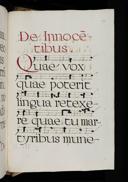 De Innocē
tibus.
Quae vox
quae poterit
lingua retexe-
re quae tu mar-
tyribus mune-